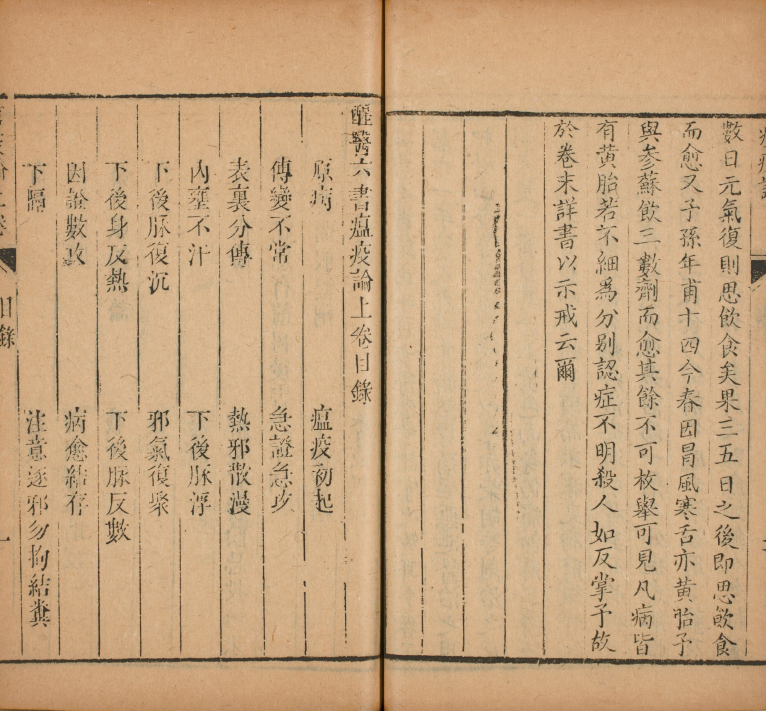 數日元氣復則思飲食矣果三五日之後即思飲食
而愈又子孫年甫十四今春因冒風寒舌亦黃胎予
與參蘇飲三數劑而愈其餘不可枚舉可見凡病皆
有黃胎若不細爲分别認症不明殺人如反掌予故
於卷末詳書以示戒云爾
醒醫六書瘟疫論上卷目錄
原病 瘟疫初起
傳變不常 急證急攻
表裏分傳 熱邪散漫
內壅不汗 下後脉浮
下後脉復沉 邪氣復聚
下後身反熱 下後脉反數
因證數攻 病愈結存
下隔 注意逐邪勿拘結糞
目錄 一